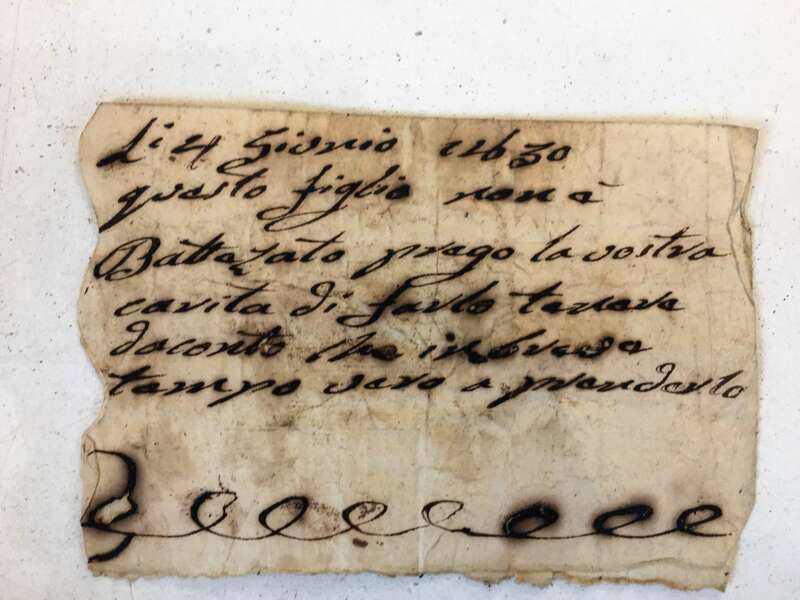 Li 4 Giunio 1630
questo figlio non è
Battezato prego la vostra
carita di farlo tenere
daconto che in breve
tempo vero a prenderlo